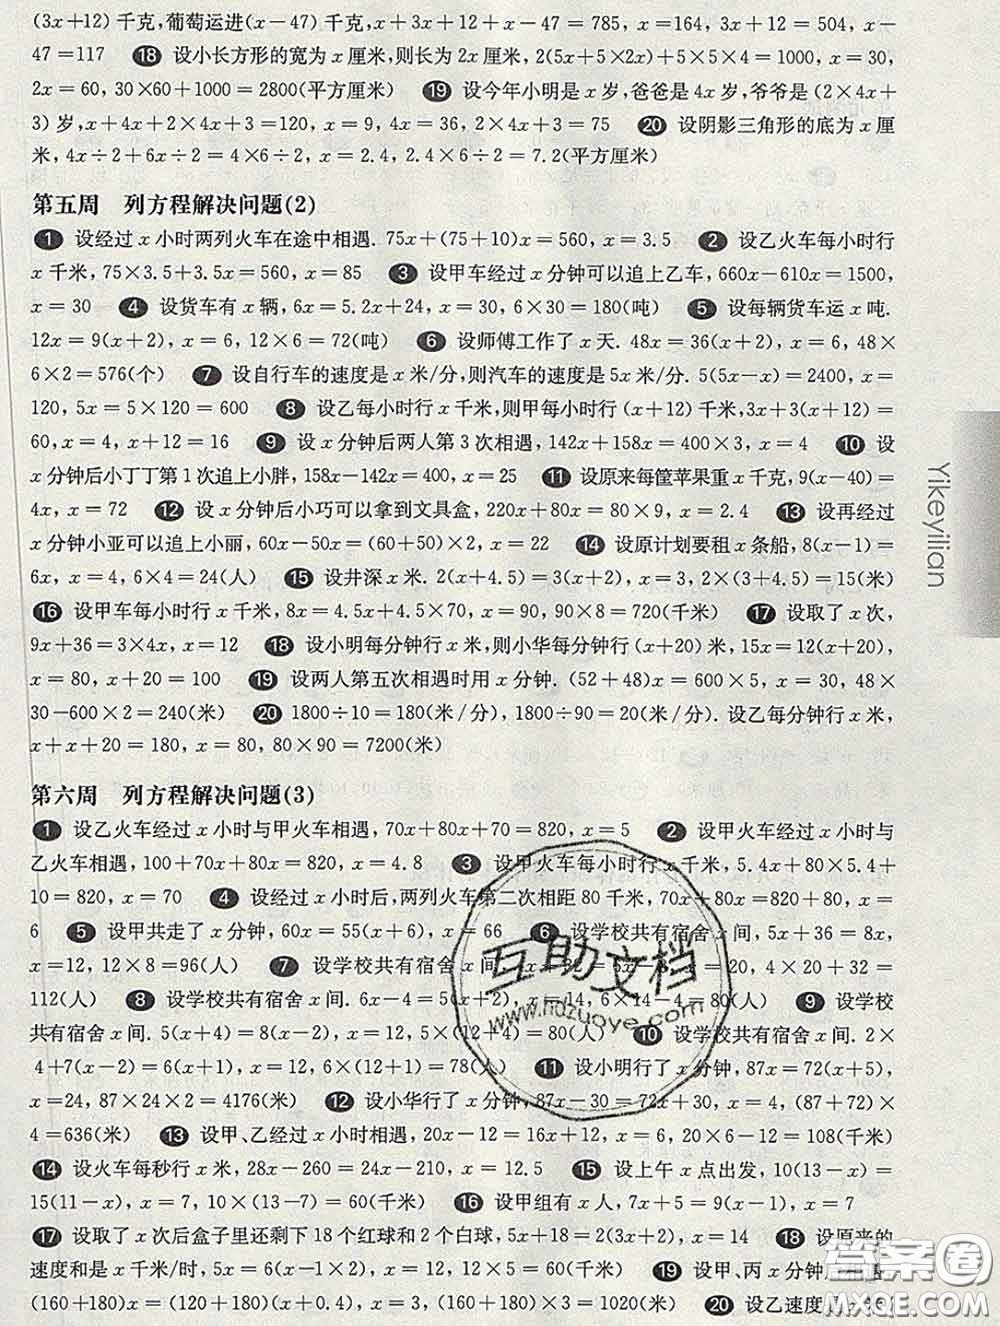 (3x+12) 千克,葡萄运进(x-47) 千克,x+3x+12+x-47=785, x=164, 3x+12=504, x-
47=117 18 设小长方形的宽为 x 厘米,则长为 2x 厘米, 2(5x+5×2x)+5×5×4=1000, x=30,
2x=60, 30×60+1000=2800(平方厘米) 19 设今年小明是 x 岁,爸爸是 4x 岁,爷爷是 (2×4x+
3) 岁, x+4x+2×4x+3=120, x=9, 4x=36, 2×4x+3=75 20 设阴影三角形的底为 x 厘
米, 4x÷2+6x÷2=4×6÷2, x=2.4, 2.4×6÷2=7.2(平方厘米)
第五周 列方程解决问题(2)
1 设经过 x 小时两列火车在途中相遇. 75x+(75+10)x=560, x=3.5 2 设乙火车每小时行
x 千米, 75×3.5+3.5x=560, x=85 3 设甲车经过 x 分钟可以追上乙车, 660x-610x=1500,
x=30 4 设货车有 x 辆, 6x=5.2x+24, x=30, 6×30=180(吨) 5 设每辆货车运 x 吨.
12x=9(x+2), x=6, 12×6=72(吨) 6 设师傅工作了 x 天. 48x=36(x+2), x=6, 48×
6×2=576(个) 7 设自行车的速度是 x 米/分,则汽车的速度是 5x 米/分. 5(5x-x)=2400, x=
120, 5x=5×120=600 8 设乙每小时行 x 千米,则甲每小时行 (x+12) 千米, 3x+3(x+12)=
60, x=4, x+12=16 9 设 x 分钟后两人第 3 次相遇, 142x+158x=400×3, x=4 10 设
x 分钟后小丁丁第 1 次追上小胖, 158x-142x=400, x=25 11 设原来每筐苹果重 x 千克, 9(x-40)=
4x, x=72 12 设 x 分钟后小巧可以拿到文具盒, 220x+80x=80×9, x=2.4 13 设再经过
x 分钟小亚可以追上小丽, 60x-50x=(60+50)×2, x=22 14 设原计划要租 x 条船, 8(x-1)=
6x, x=4, 6×4=24(人) 15 设井深 x 米. 2(x+4.5)=3(x+2), x=3, 2×(3+4.5)=15(米)
16 设甲车每小时行 x 千米, 8x=4.5x+4.5×70, x=90, 90×8=720(千米) 17 设取了 x 次,
9x+36=8x+4x, x=12 18 设小明每分钟行 x 米,则小华每分钟行 (x+20) 米, 15x=12(x+20),
x=80, x+20=100 19 设两人第五次相遇时用 x 分钟. (52+48)x=600×5, x=30, 48×
30-600×2=240(米) 20 1800÷10=180(米/分), 1800÷90=20(米/分). 设乙每分钟行 x 米,
x+x+20=180, x=80, 80×90=7200(米)
第六周 列方程解决问题(3)
1 设乙火车经过 x 小时与甲火车相遇, 70x+80x+70=820, x=5 2 设甲火车经过 x 小时与
乙火车相遇, 100+70x+80x=820, x=4.8 3 设甲火车每小时行 x 千米, 5.4x+80×5.4+
10=820, x=70 4 设经过 x 小时后,两列火车第二次相距 80 千米, 70x+80x=820+80, x=
6 5 设甲共走了 x 分钟, 60x=55(x+6), x=66 6 设学校共有宿舍 x 间, 5x+36=8x,
x=12, 12×8=96(人) 7 设学校共有宿舍 x 间, x=20, 4×20+32=
112(人) 8 设学校共有宿舍 x 间. 6x-4=5(x+2), x=14, 6×14-4=80(人) 9 设学校
共有宿舍 x 间. 5(x+4)=8(x-2), x=12, 5×(12+4)=80(人) 10 设学校共有宿舍 x 间. 2×
4+7(x-2)=6(x+1), x=12, 6×(12+1)=78(人) 11 设小明行了 x 分钟, 87x=72(x+5),
x=24, 87×24×2=4176(米) 12 设小华行了 x 分钟, 87x-30=72x+30, x=4, (87+72)×
4=636(米) 13 设甲、乙经过 x 小时相遇, 20x-12=16x+12, x=6, 20×6-12=108(千米)
14 设火车每秒行 x 米, 28x-260=24x-210, x=12.5 15 设上午 x 点出发, 10(13-x)=
15(11-x), x=7, 10×(13-7)=60(千米) 16 设甲组有 x 人, 7x+5=9(x-1), x=7
17 设取了 x 次后盒子里还剩下 18 个红球和 2 个白球, 5x+18=2(3x+2), x=14 18 设原来的
速度和是 x 千米/时, 5x=6(x-1×2), x=12, 12×5=60(千米) 19 设甲、丙 x 分钟
(160+180)x=(120+180)(x+0.4), x=3, (160+180)×3=1020(米) 20 设乙速度是
Yikeyilian
互助文档
www.hdzuoye.com
答案圈